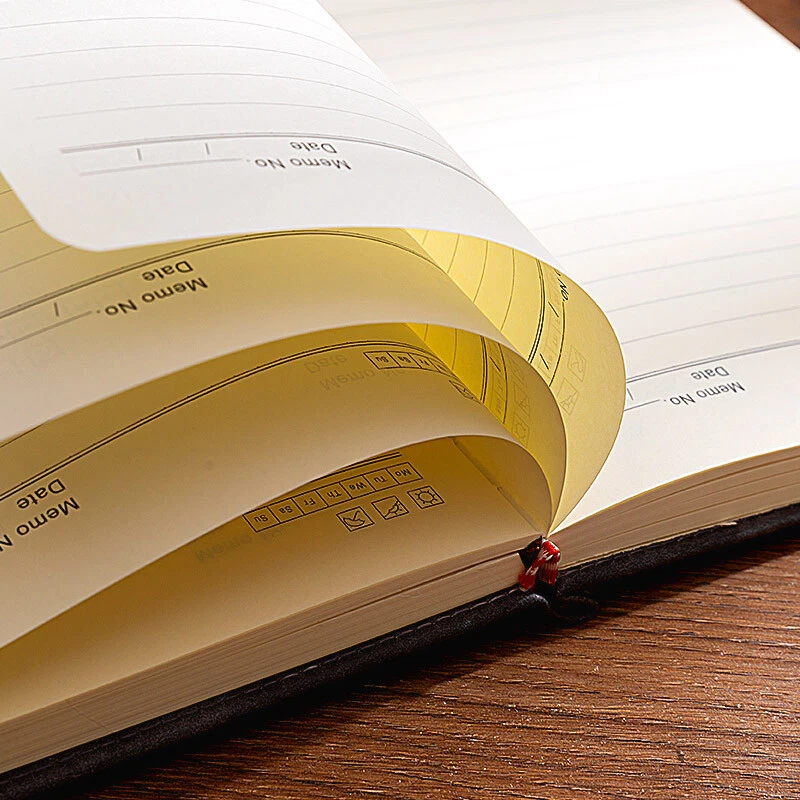 Memo No.
Date / /
Memo No.
Date /
Memo No.
Date
Mo Tu Wa Th Fr Sa Su
Sa Su
Memo No.
Date /